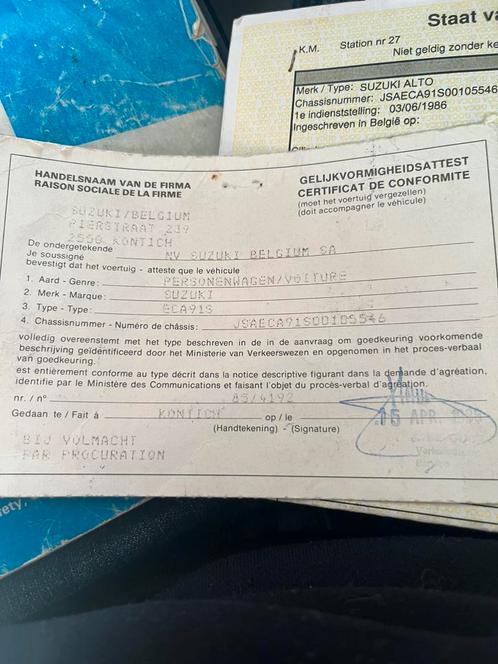 Staat va
K.M. Station nr 27
Niet geldig zonder ke
Merk / Type: SUZUKI ALTO
Chassisnummer: JSAECA91S00105546
1e indienststelling: 03/06/1986
Ingeschreven in België op:
HANDELSNAAM VAN DE FIRMA
RAISON SOCIALE DE LA FIRME
GELIJKVORMIGHEIDSATTEST
CERTIFICAT DE CONFORMITE
(moet het voertuig vergezellen)
(doit accompagner le véhicule)
SUZUKI/BELGIUM
PIERSTRAAT 239
2550 KONTICH
De ondergetekende
Je soussigné NV SUZUKI BELGIUM SA
bevestigt dat het voertuig - atteste que le véhicule
1. Aard - Genre: PERSONENWAGEN/VOITURE
2. Merk - Marque: SUZUKI
3. Type - Type: ECA91S
4. Chassisnummer - Numéro de châssis: JSAECA91S00105546
volledig overeenstemt met het type beschreven in de in aanvraag om goedkeuring voorkomende
beschrijving geïdentificeerd door het Ministerie van Verkeerswezen en opgenomen in het proces-verbaal
van goedkeuring.
est entièrement conforme au type décrit dans la notice descriptive figurant dans la demande d'agréation,
identifie par le Ministère des Communications et faisant l'objet du procès-verbal d'agréation.
nr. / n° 85/4192
Gedaan te / Fait à KONTICH op / le
(Handtekening) - (Signature)
15 APR.
BIJ VOLMACHT
PAR PROCURATION
ety,